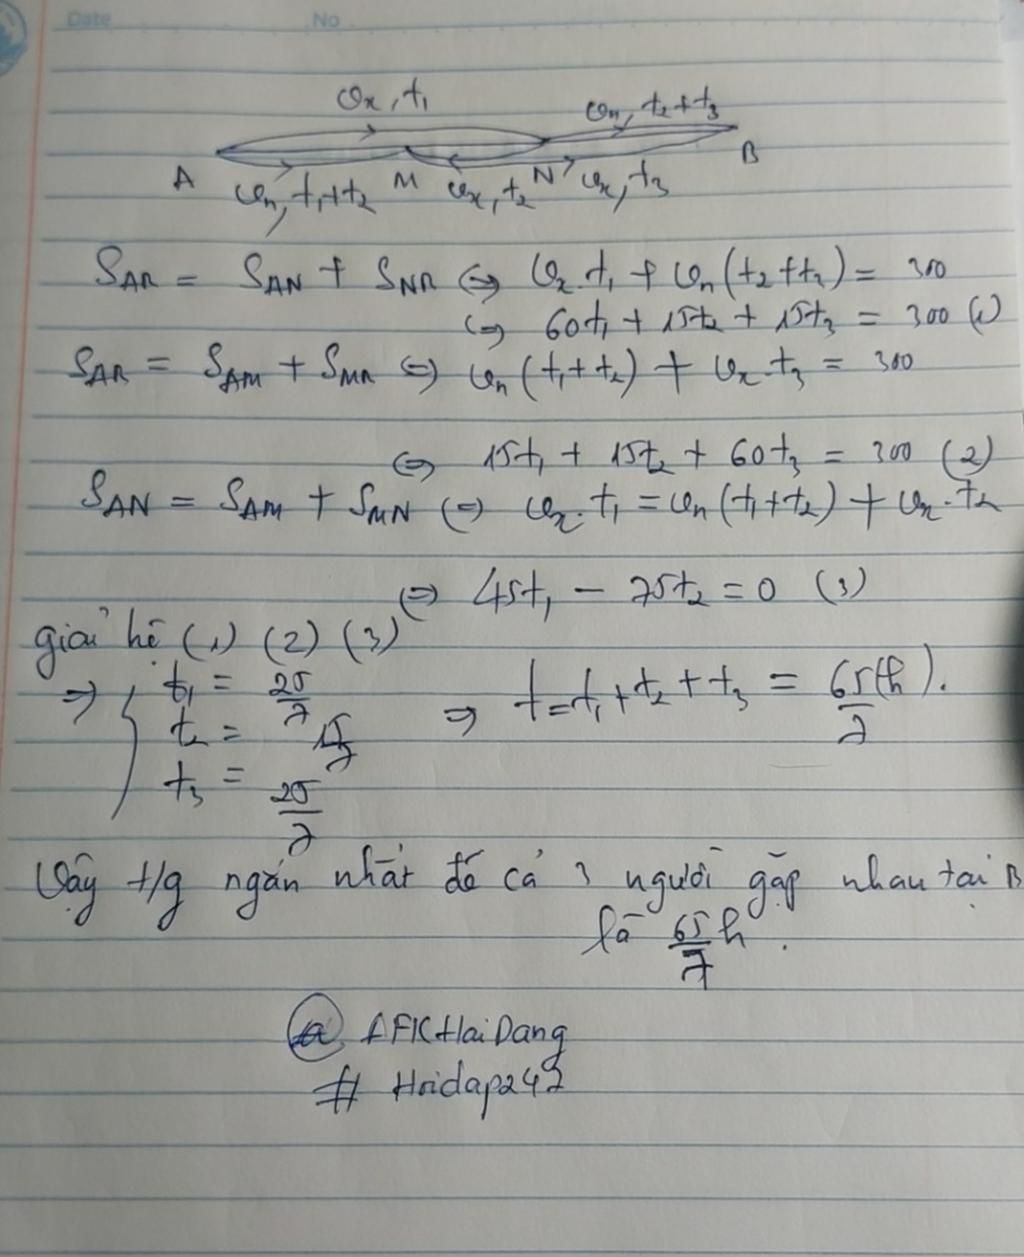 Date No
vₓ, t₁
vₙ, t₂+t₃
A M N B
vₙ, t₁+t₂ vₓ, t₂ vₓ, t₃
S_AB = S_AN + S_NB ⇔ vₓ.t₁ + vₙ(t₂+t₃) = 300
⇔ 60t₁ + 15t₂ + 15t₃ = 300 (1)
S_AB = S_AM + S_MB ⇔ vₙ(t₁+t₂) + vₓ.t₃ = 300
⇔ 15t₁ + 15t₂ + 60t₃ = 300 (2)
S_AN = S_AM + S_MN ⇔ vₓ.t₁ = vₙ(t₁+t₂) + vₓ.t₂
⇔ 45t₁ - 75t₂ = 0 (3)
giải hệ (1) (2) (3)
⇒ { t₁ = 25/7
t₂ = 15/7
t₃ = 25/7
⇒ t = t₁ + t₂ + t₃ = 65/7 (h).
Vậy t/g ngắn nhất để cả 3 người gặp nhau tại B
là 65/7 h.
@ AFKHaiDang
# Hoidap247